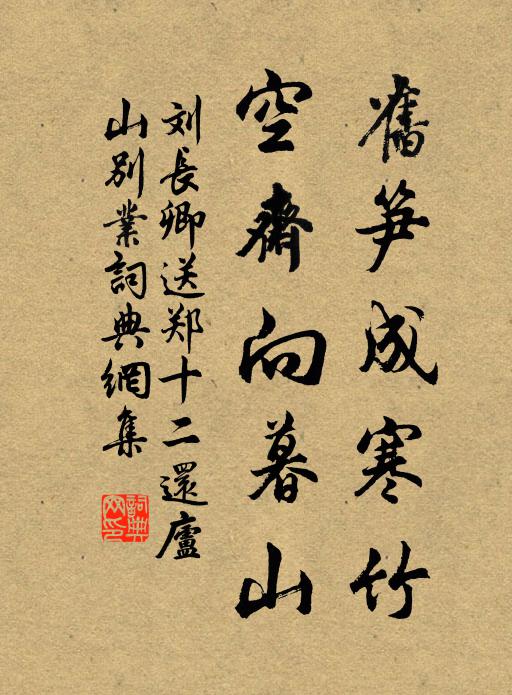 舊笋成寒竹
空齋向暮山
刘長卿送郑十二還廬
山别業詞典網集
詞典
网印